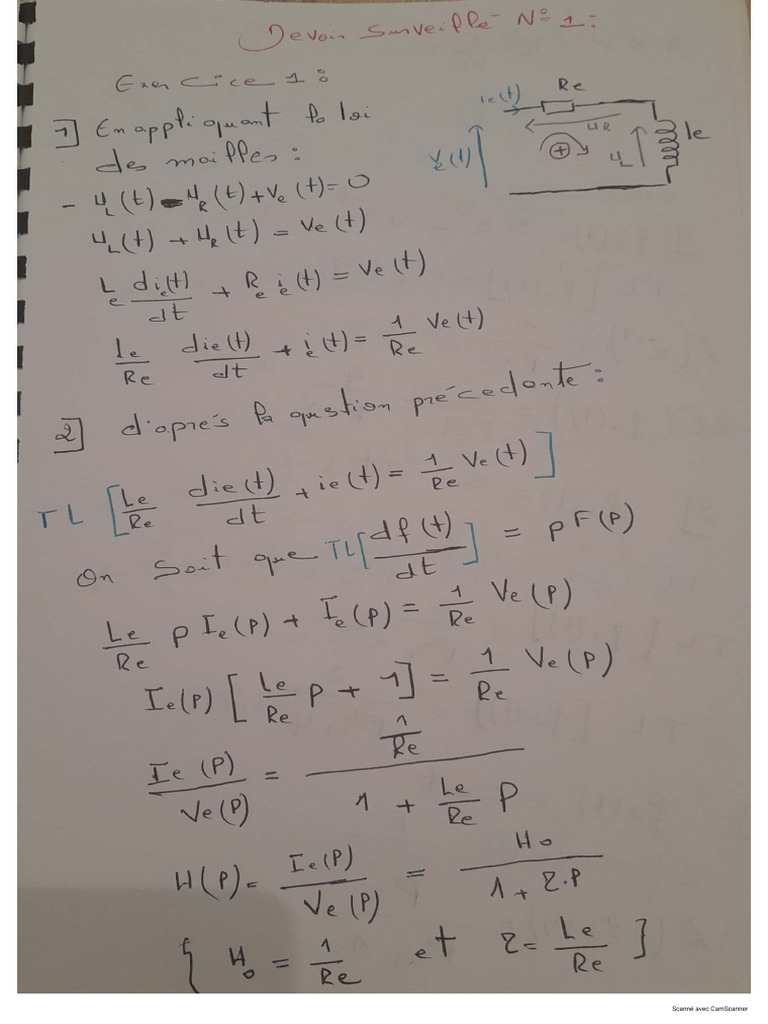 Devoir Surveillé N° 1 :
Exercice 1 :
1] En appliquant la loi
des mailles :
- u_L(t) - u_R(t) + Ve(t) = 0
u_L(t) + u_R(t) = Ve(t)
Le die(t)/dt + Re ie(t) = Ve(t)
Le/Re die(t)/dt + ie(t) = 1/Re Ve(t)
ie(t)
Re
u_R
Ve(t)
+
u_L
le
2] d'aprés la question précedante :
TL [Le/Re die(t)/dt + ie(t) = 1/Re Ve(t)]
On Soit que TL[df(t)/dt] = p F(p)
Le/Re p Ie(p) + Ie(p) = 1/Re Ve(p)
Ie(p) [Le/Re p + 1] = 1/Re Ve(p)
Ie(p)/Ve(p) = (1/Re)/(1 + Le/Re p)
H(p) = Ie(p)/Ve(p) = Ho/(1 + τ.p)
{ Ho = 1/Re et τ = Le/Re ]
Scanné avec CamScanner